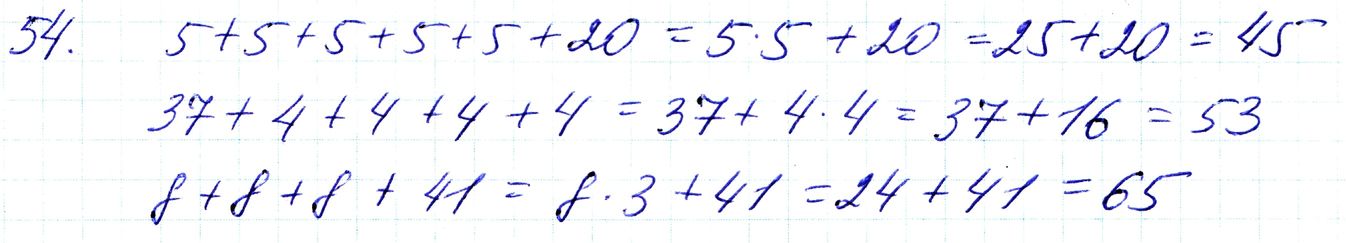 54. 5+5+5+5+5+20 = 5·5 + 20 = 25+20 = 45
37+4+4+4+4 = 37+4·4 = 37+16 = 53
8+8+8+41 = 8·3+41 = 24+41 = 65